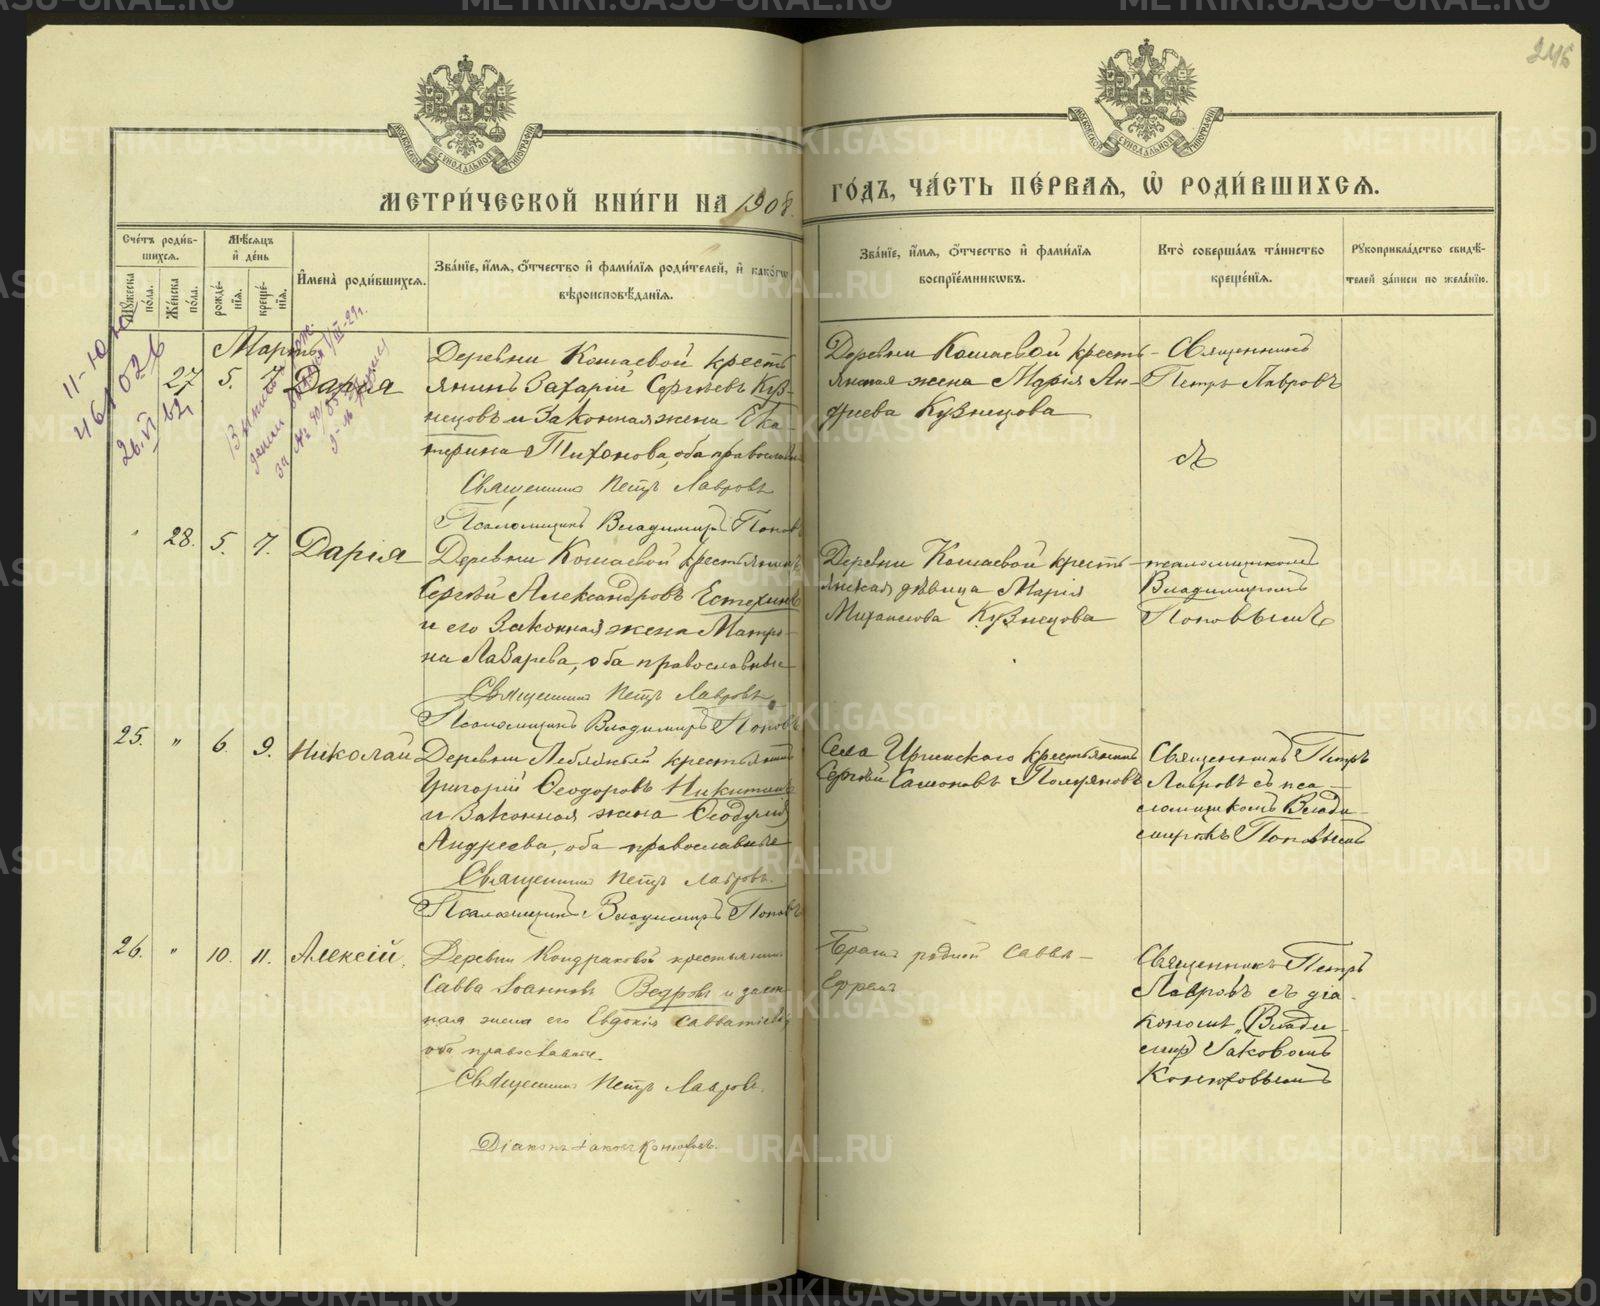 246
МОСКОВСКОЙ СѴНОДАЛЬНОЙ ТИПОГРАФІИ
МОСКОВСКОЙ СѴНОДАЛЬНОЙ ТИПОГРАФІИ
МЕТРИ́ЧЕСКОЙ КНИ́ГИ НА 1908
ГО́ДЪ, ЧА́СТЬ ПЕ́РВАѦ, Ѽ РОДИ́ВШИХСѦ.
Сче́тъ роди́в-
шихсѧ.
Мѣ́сѧцъ
и де́нь
Мꙋ́жеска
по́ла.
Же́нска
по́ла.
рожде́-
нїѧ.
креще́-
нїѧ.
И҆мена̀ роди́вшихсѧ.
Зва́нїе, и҆́мѧ, ѻ҆́тчество и҆ фами́лїѧ роди́телей, и҆ како́гѡ
вѣроисповѣ́данїѧ.
Зва́нїе, и҆́мѧ, ѻ҆́тчество и҆ фами́лїѧ
воспрїе́мникѡвъ.
Кто̀ соверша́лъ та́инство
креще́нїѧ.
Рꙋкоприкла́дство свидѣ́-
телей за́писи по жела́нїю.
Мартъ
27 5. 7. Дарія
Деревни Кошаевой кресть
янинъ Захарій Сергѣевъ Куз-
нецовъ и законная жена Ека-
терина Тихонова, оба православн
Священникъ Петръ Лавровъ
Псаломщикъ Владимиръ Поповъ
Деревни Кошаевой кресть-
янская жена Марія Ан-
дреева Кузнецова
Священникъ
Петръ Лавровъ
съ
28. 5. 7. Дарія
Деревни Кошаевой крестьянинъ
Сергѣй Александровъ Естехинъ
и его законная жена Матро-
на Лазарева, оба православные
Священникъ Петръ Лавровъ
Псаломщикъ Владимиръ Поповъ
Деревни Кошаевой кресть-
янская дѣвица Марія
Михаилова Кузнецова
псаломщикомъ
Владимиромъ
Поповымъ
25. " 6. 9. Николай
Деревни Лебяжьей крестьянинъ
Григорій Ѳеодоровъ Никитинъ
и законная жена Ѳеодулія
Андреева, оба православные
Священникъ Петръ Лавровъ.
Псаломщикъ Владимиръ Поповъ
Села Иргинскаго крестьянинъ
Сергѣй Самоновъ
Священникъ Петръ
Лавровъ съ пса-
ломщикомъ Влади-
миромъ Поповымъ
26. " 10. 11. Алексій.
Деревни Кондраковой крестьянинъ
Савва Іоанновъ Ведровъ и закон
ная жена его Евдокія Савватіева
оба православные.
Священникъ Петръ Лавровъ.
Діаконъ Іаковъ Конюховъ.
Братъ родной Савва-
Ефремъ
Священникъ Петръ
Лавровъ съ діа-
кономъ
Іаковомъ
Конюховымъ
METRIKI.GASO-URAL.RU